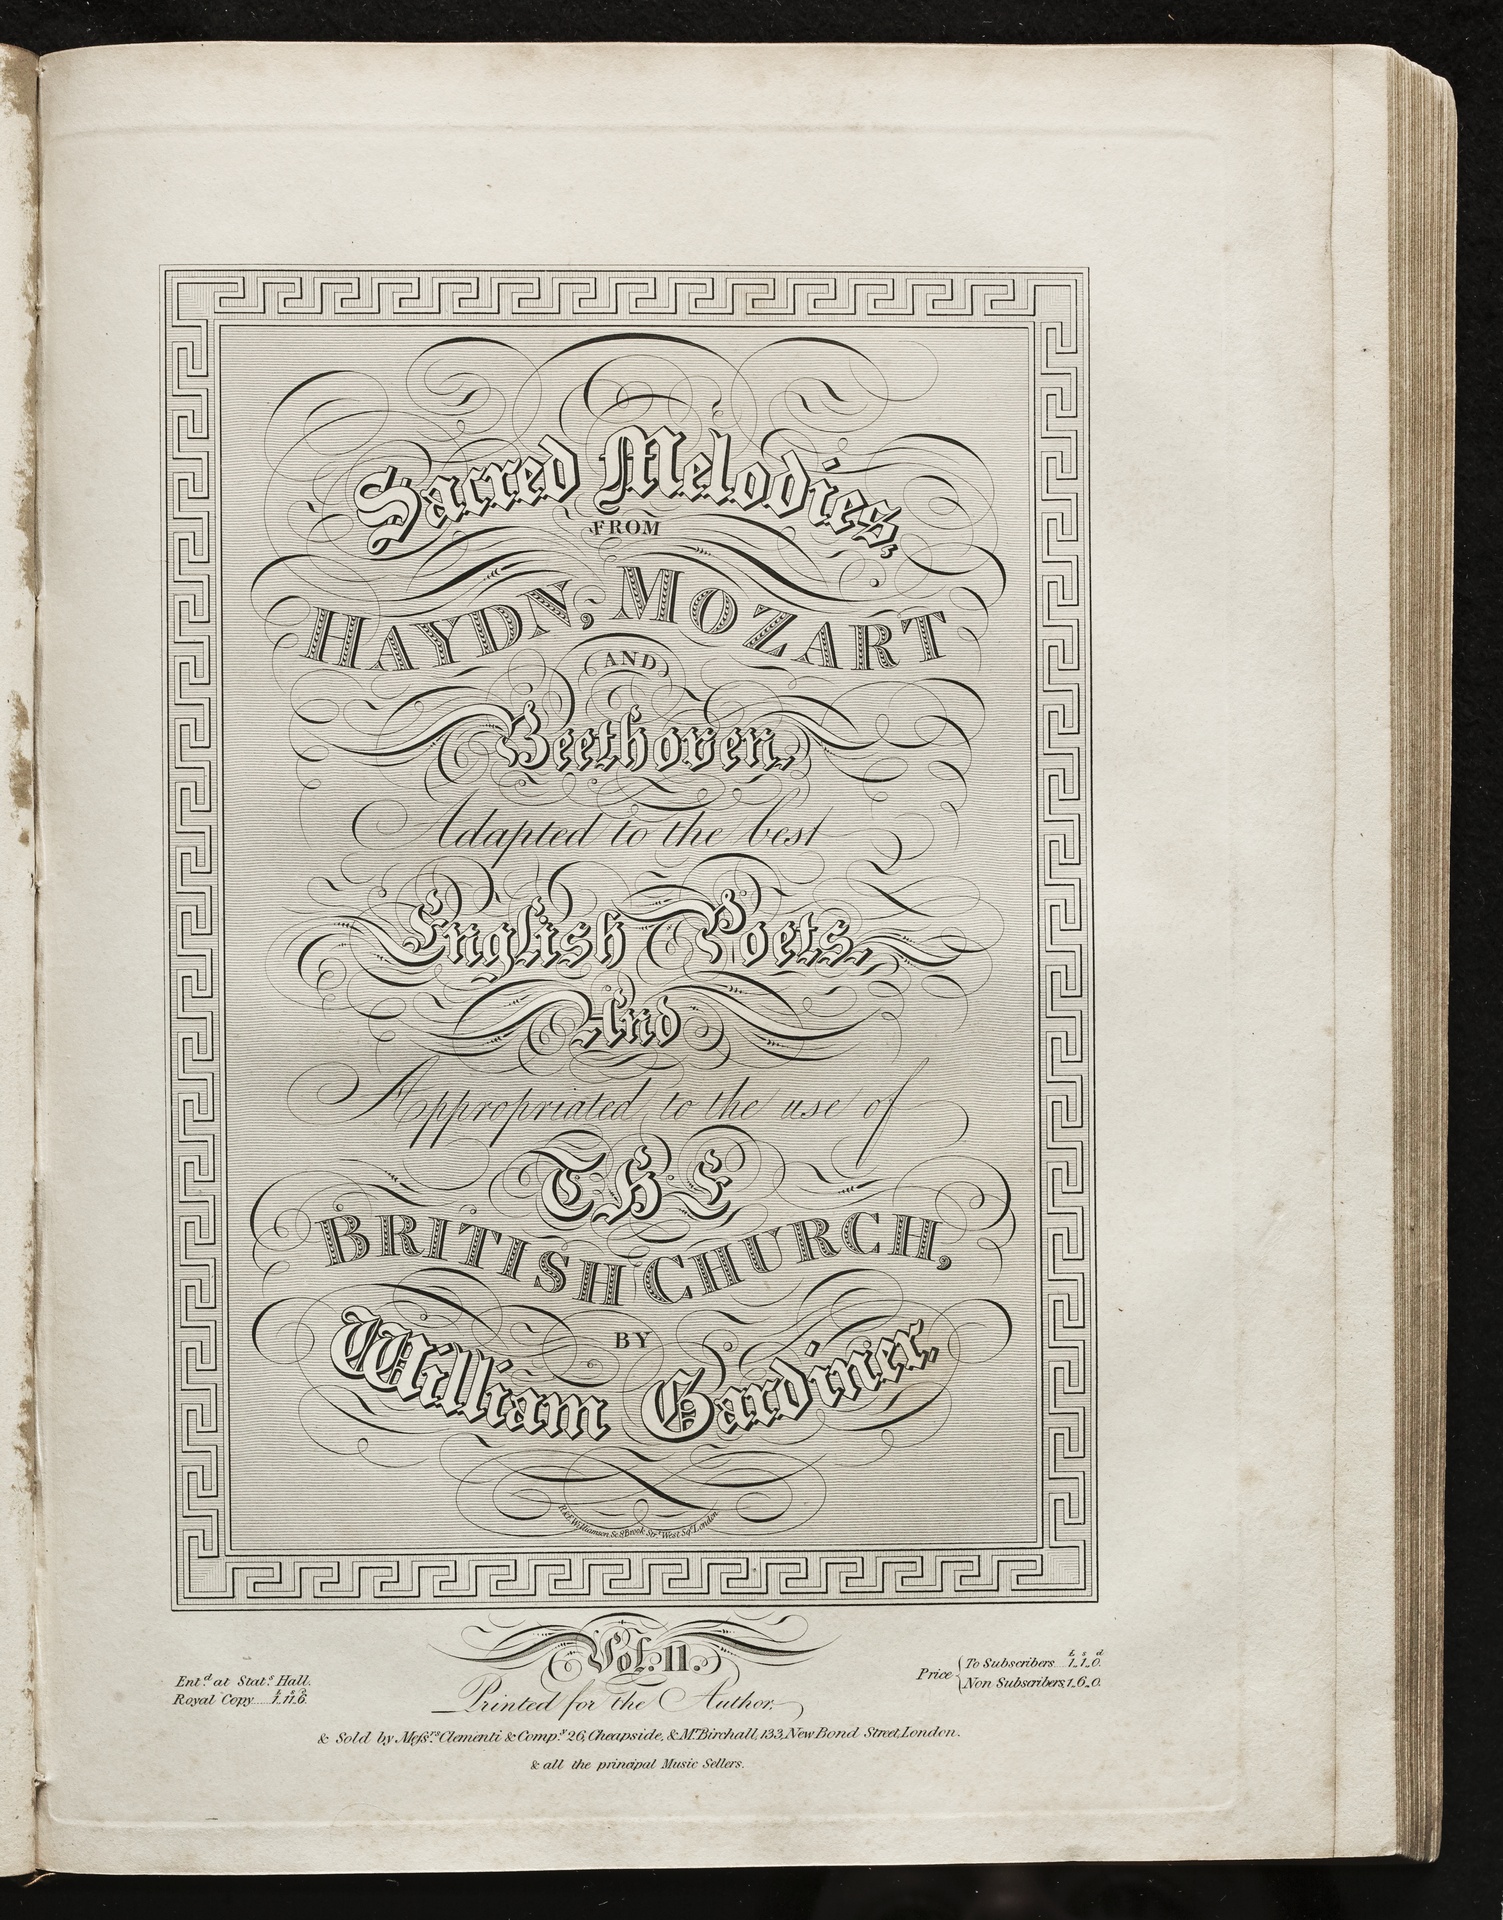 Sacred Melodies,
FROM
HAYDN, MOZART
AND
Beethoven,
Adapted to the best
English Poets,
And
Appropriated to the use of
THE
BRITISH CHURCH,
BY
William Gardiner.
Williamson Sc 8 Brook Str.t West Sq.r London
Vol. II.
Ent.d at Stat.s Hall.
Royal Copy.... £1. s11. d6.
Price { To Subscribers... £1. s1. d0.
Non Subscribers, 1. 6. 0.
Printed for the Author,
& Sold by Meſs.rs Clementi & Comp.y 26, Cheapside, & M.r Birchall, 133, New Bond Street, London.
& all the principal Music Sellers.